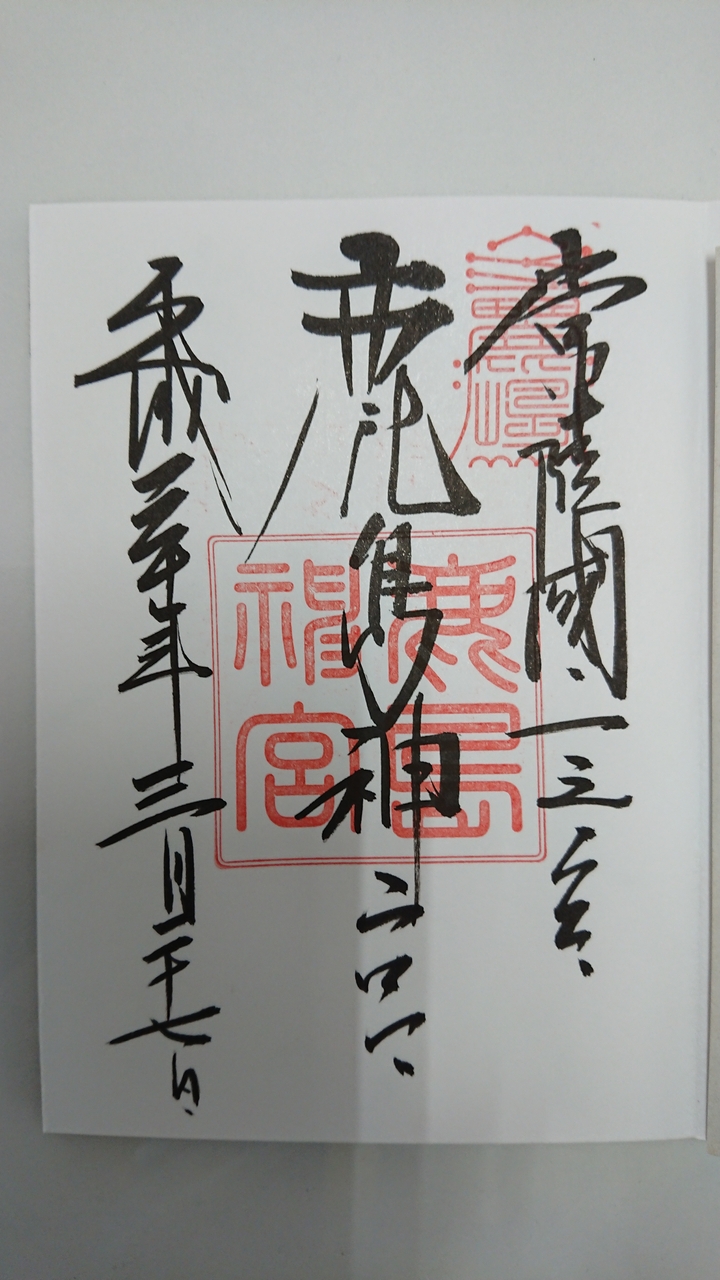 常陸國一之宮
鹿島神宮
平成三十年三月二十七日
鹿島
神宮